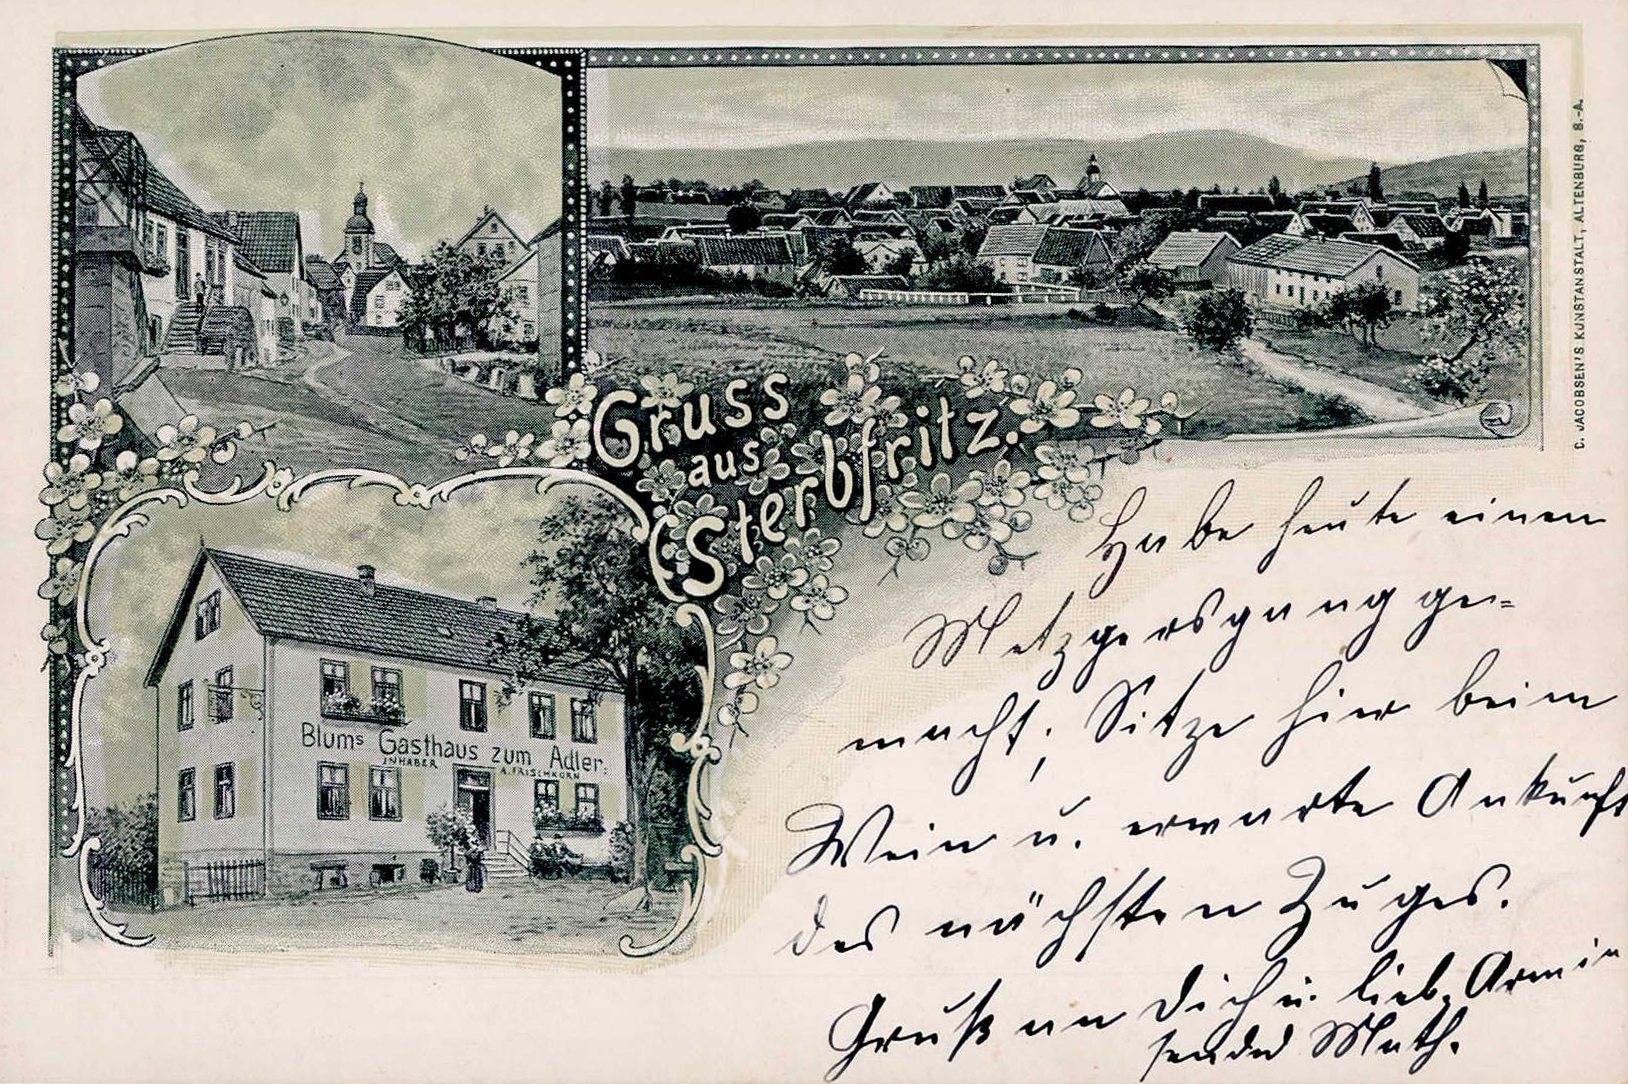 Gruss
aus
Sterbfritz.
Blums Gasthaus zum Adler.
INHABER A. FRISCHKORN
C. JACOBSEN'S KUNSTANSTALT, ALTENBURG, S.-A.
Habe heute einen
Metzgersgang ge=
macht; Sitze hier beim
Wein u. erwarte Ankunft
des nächsten Zuges.
Gruß an Dich u. lieb. Armin
sendet Math.